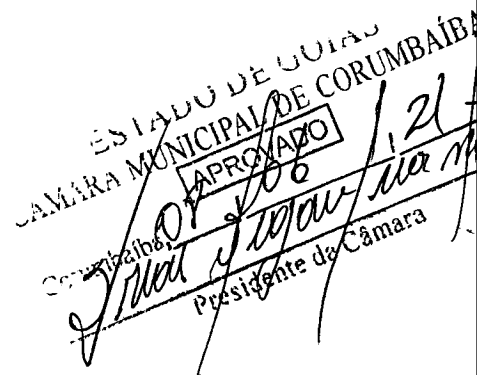 ESTADO DE GOIAS
CAMARA MUNICIPAL DE CORUMBAÍBA
APROVADO
Corumbaíba, 08 / 06 / 21
Presidente da Câmara